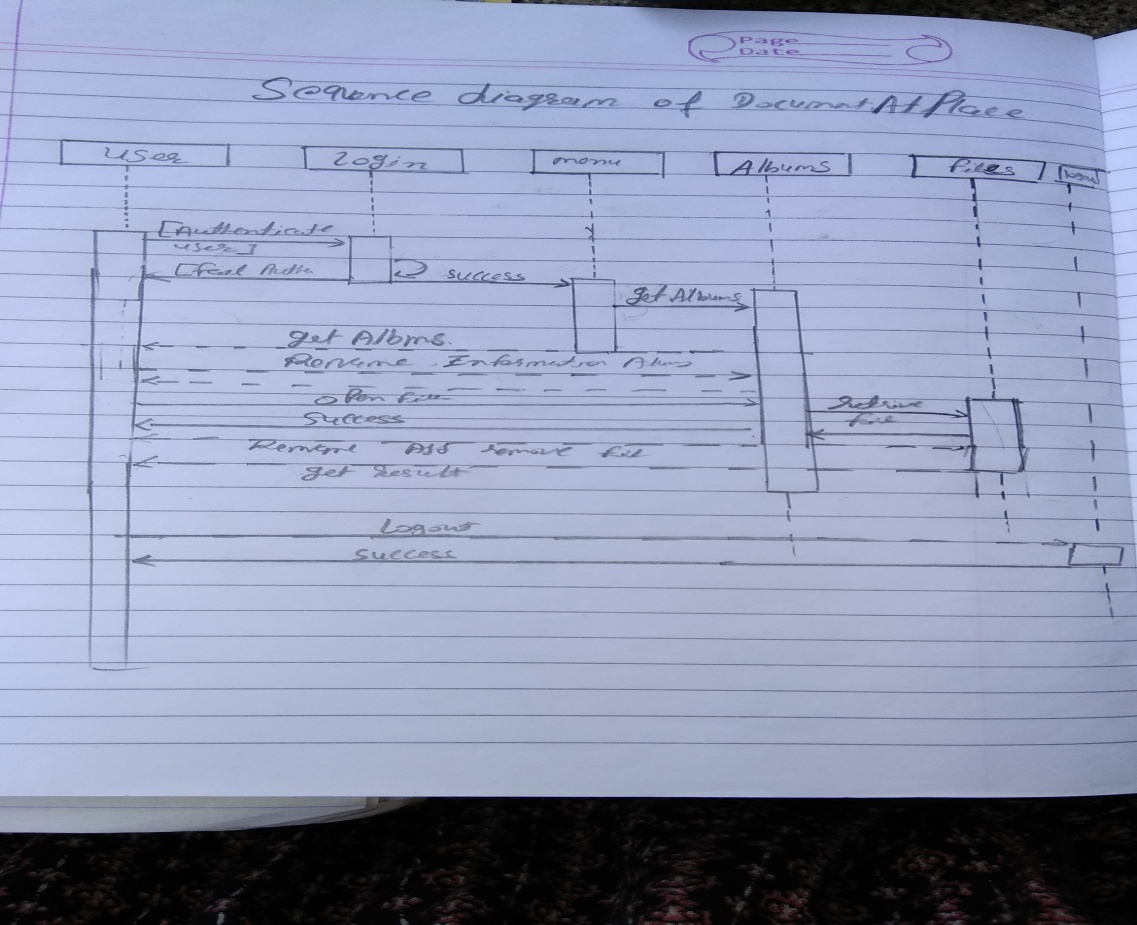 Page
Date
Sequence diagram of DocumentAtPlace
user
Login
menu
Albums
Files
[Authenticate
user]
[Fail Authe
success
get Albums
get Albms.
Rename Information
Open File
Success
Retrive
file
Rename Add remove file
get result
Logout
success